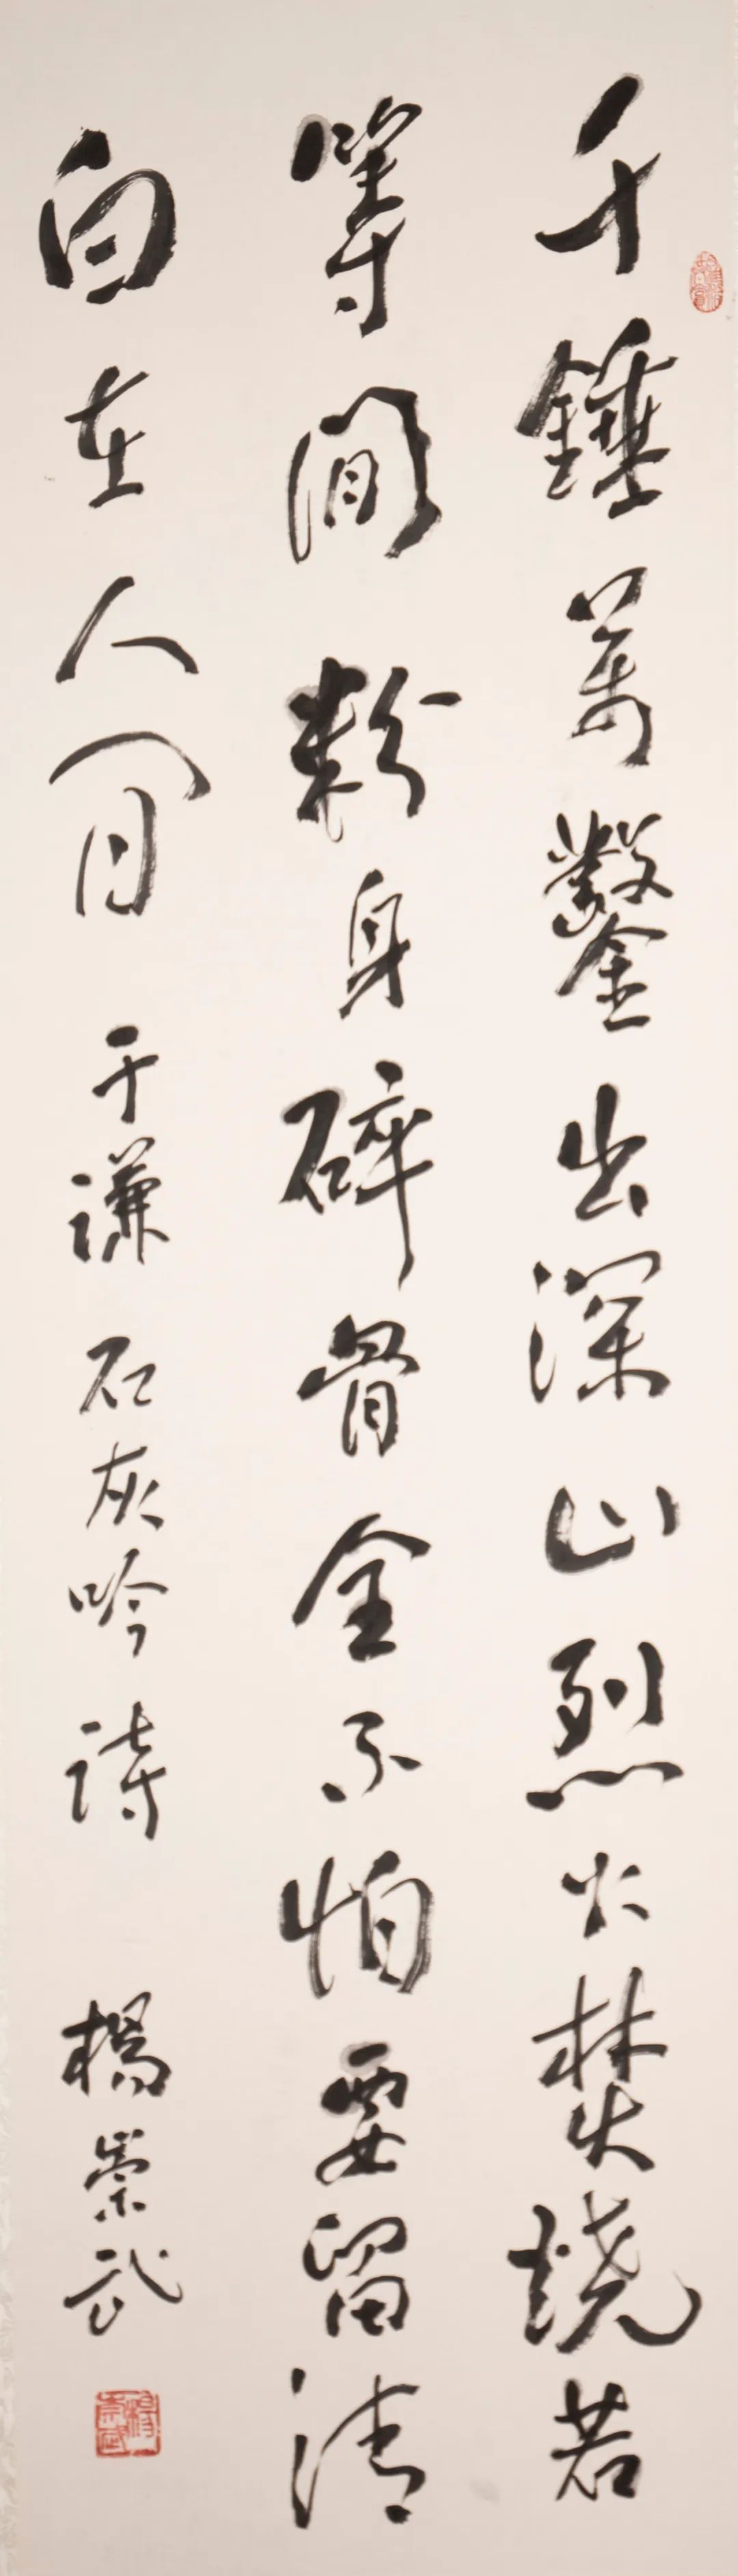 千錘萬鑿出深山烈火焚燒若
等閒粉身碎骨全不怕要留清
白在人間 于謙 石灰吟 詩 楊崇武